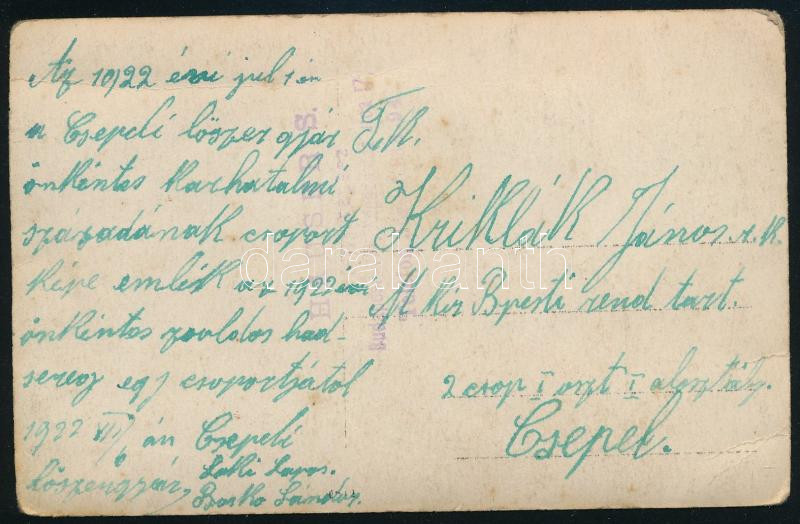 Az 1922 évi jul 1 én
a Csepeli lőszer gyár
önkéntes karhatalmi
századának csoport
képe emlék az 1922 évi
önkéntes zsoldos had-
sereg egy csoportjától
1922 VII/6 án Csepeli
lőszergyár,
Lajos.
Sándor.
T. k.
Kriklák János r. k.
M kir Bpesti rend tart.
2 csop I oszt I alosztály.
Csepel.
darabanth